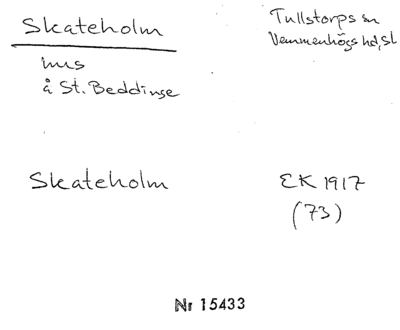 Skateholm
Tullstorps sn
Vemmenhögs hd, Sk
hus
å St. Beddinge
Skateholm
EK 1917
(73)
Nr 15433